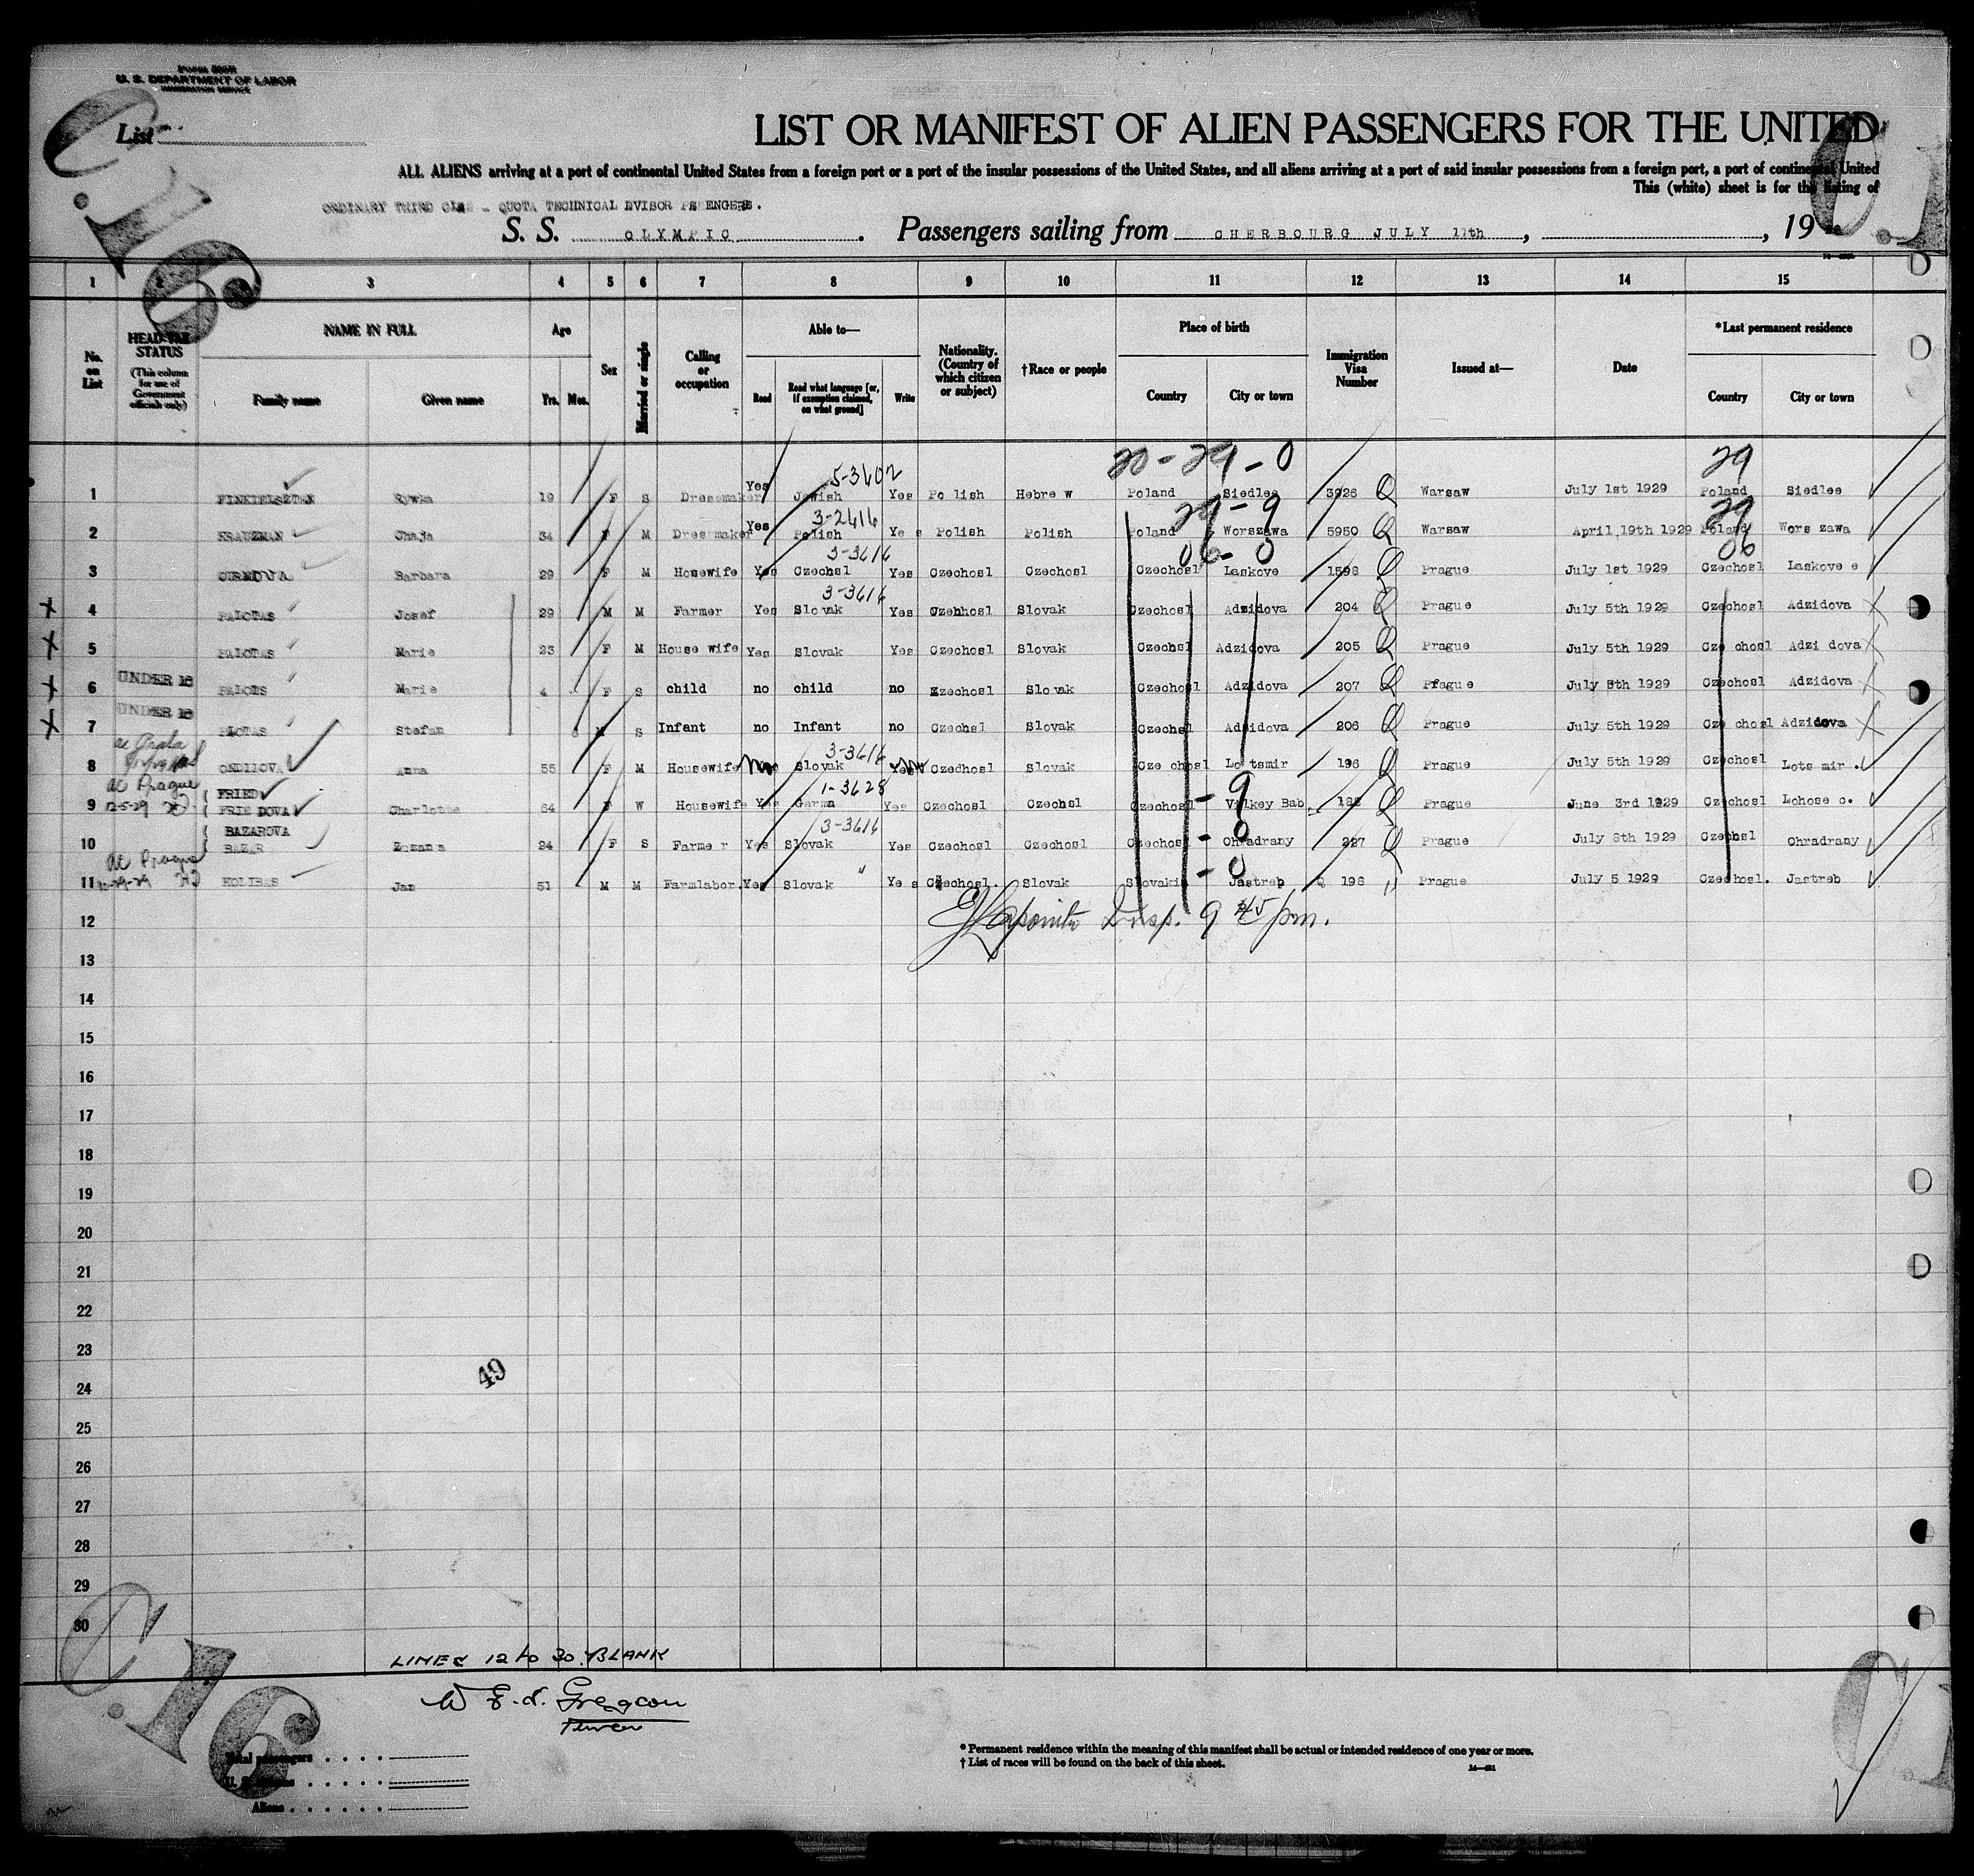 Form 500B
U. S. DEPARTMENT OF LABOR
IMMIGRATION SERVICE
C.16
List
LIST OR MANIFEST OF ALIEN PASSENGERS FOR THE UNITED
ALL ALIENS arriving at a port of continental United States from a foreign port or a port of the insular possessions of the United States, and all aliens arriving at a port of said insular possessions from a foreign port, a port of continental United
This (white) sheet is for the listing of
ORDINARY THIRD CLASS - QUOTA TECHNICAL DVISOR PASSENGERS.
S. S. OLYMPIC. Passengers sailing from CHERBOURG JULY 17th, , 19
1 2 3 4 5 6 7 8 9 10 11 12 13 14 15
No. on List
HEAD-TAX STATUS (This column for use of Government officials only)
NAME IN FULL Family name Given name
Age Yrs. Mos.
Sex
Married or single
Calling or occupation
Able to— Read Read what language [or, if exemption claimed, on what ground] Write
Nationality. (Country of which citizen or subject)
†Race or people
Place of birth Country City or town
Immigration Visa Number
Issued at—
Date
*Last permanent residence Country City or town
20-29-0 29
5-3602
1 FINKIELSZTAN Rywka 19 F S Dressmaker Yes Jewish Yes Po lish Hebre w Poland Siedlee 3926 Q Warsaw July 1st 1929 Poland Siedlee
3-2616 29-9 29
2 KRAUZMAN Chaja 34 F M Dressmaker Yes Polish Ye s Polish Polish Poland Worszawa 5950 Q Warsaw April 19th 1929 Poland Wors zawa
3-3616 06-0 06
3 Barbara 29 F M Housewife Yes Czechsl Yes Czechosl Czechosl Czechosl Laskove 1598 Q Prague July 1st 1929 Czechosl Laskove e
3-3616
X 4 PALOTAS Josef 29 M M Farmer Yes Slovak Yes Czehhosl Slovak Czechosl Adzidova 204 Q Prague July 5th 1929 Czechosl Adzidova
X 5 PALOTAS Marie 23 F M House wife Yes Slovak Yes Czechosl Slovak Czechsl Adzidova 205 Q Prague July 5th 1929 Cze chosl Adzi dova
UNDER 16
X 6 PALOTS Marie 4 F S child no child no Czechosl Slovak Czechosl Adzidova 207 Q Prague July 5th 1929 Czechosl Adzidova
UNDER 16
X 7 Stefan M S Infant no Infant no Czechsl Slovak Czechsl Adzidova 206 Q Prague July 5th 1929 Cze chosl Adzidova
3-3616
8 ONDIJOVA Anna 55 F M Housewife No Slovak Czedhosl Slovak Cze chosl Lo tsmir 196 Q Prague July 5th 1929 Czechosl Lots mir .
ac Prague 12-5-29
FRIED 1-3628
9 FRIE DOVA Charlotte 64 F W Housewife Yes Germa Yes Czechosl Czechsl Czechosl -9 Velkey Bab. Q Prague June 3rd 1929 Czechosl Lohose c.
BAZAROVA 3-3616
10 BAZAR Zuzana 24 F S Farme r Yes Slovak Yes Czechosl Czechosl Czechosl -0 Ohradrany 227 Q Prague July 8th 1929 Czechsl Ohradrany
ac Prague
11 HOLIBAS Jan 51 M M Farmlabor. Yes Slovak " Ye s Czechosl. Slovak Slovakia -0 Jastreb Q 198 " Prague July 5 1929 Czechosl. Jastreb
12 Insp. 9 45 pm.
13
14
15
16
17
18
19
20
21
22
23
49
24
25
26
27
28
29
30
LINES 12 to 30 BLANK
C.16
Total passengers
U. S. citizens
Aliens
* Permanent residence within the meaning of this manifest shall be actual or intended residence of one year or more.
† List of races will be found on the back of this sheet.